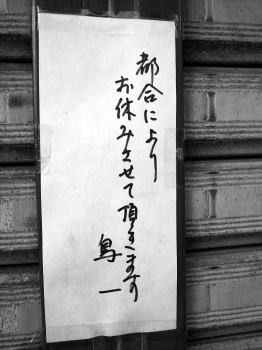 都合により
お休みさせて頂きます
鳥一